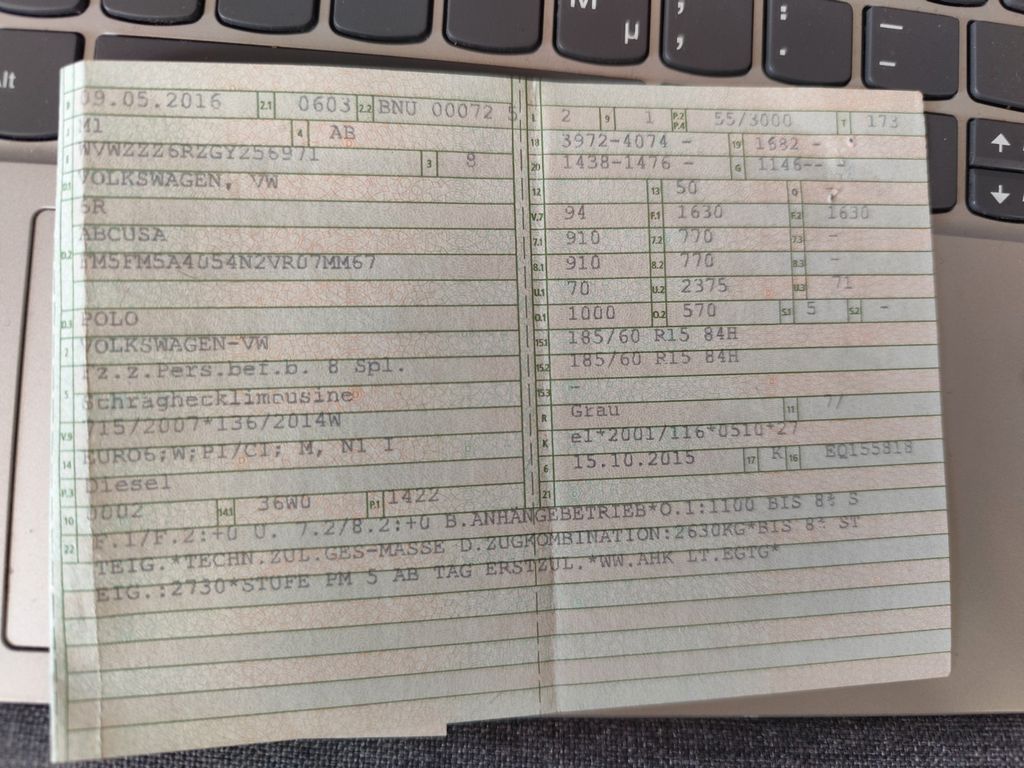 µ
; ,
: .
Alt
B 09.05.2016 2.1 0603 2.2 BNU 00072 5
J M1 4 AB
E WVWZZZ6RZGY256971 3 8
D.1 VOLKSWAGEN, VW
6R
D.2 ABCUSA
FM5FM5A4054N2VR07MM67
D.3 POLO
2 VOLKSWAGEN-VW
5 Fz.z.Pers.bef.b. 8 Spl.
Schräghecklimousine
V.9 715/2007*136/2014W
14 EURO6;W;PI/CI; M, N1 I
P.3 Diesel
10 0002 14.1 36W0 P.1 1422
L 2 9 1 P.2 P.4 55/3000 T 173
18 3972-4074 - 19 1682 -
20 1438-1476 - G 1146-- -
12 13 50 Q -
V.7 94 F.1 1630 F.2 1630
7.1 910 7.2 770 7.3 -
8.1 910 8.2 770 8.3 -
U.1 70 U.2 2375 U.3 71
O.1 1000 O.2 570 S.1 5 S.2 -
15.1 185/60 R15 84H
15.2 185/60 R15 84H
15.3 -
R Grau 11 7/
K e1*2001/116*0510*27
6 15.10.2015 17 K 16 EQ155818
21
22 F.1/F.2:+0 U. 7.2/8.2:+0 B.ANHÄNGEBETRIEB*O.1:1100 BIS 8% S
TEIG.*TECHN.ZUL.GES-MASSE D.ZUGKOMBINATION:2630KG*BIS 8% ST
EIG.:2730*STUFE PM 5 AB TAG ERSTZUL.*WW.AHK LT.EGTG*